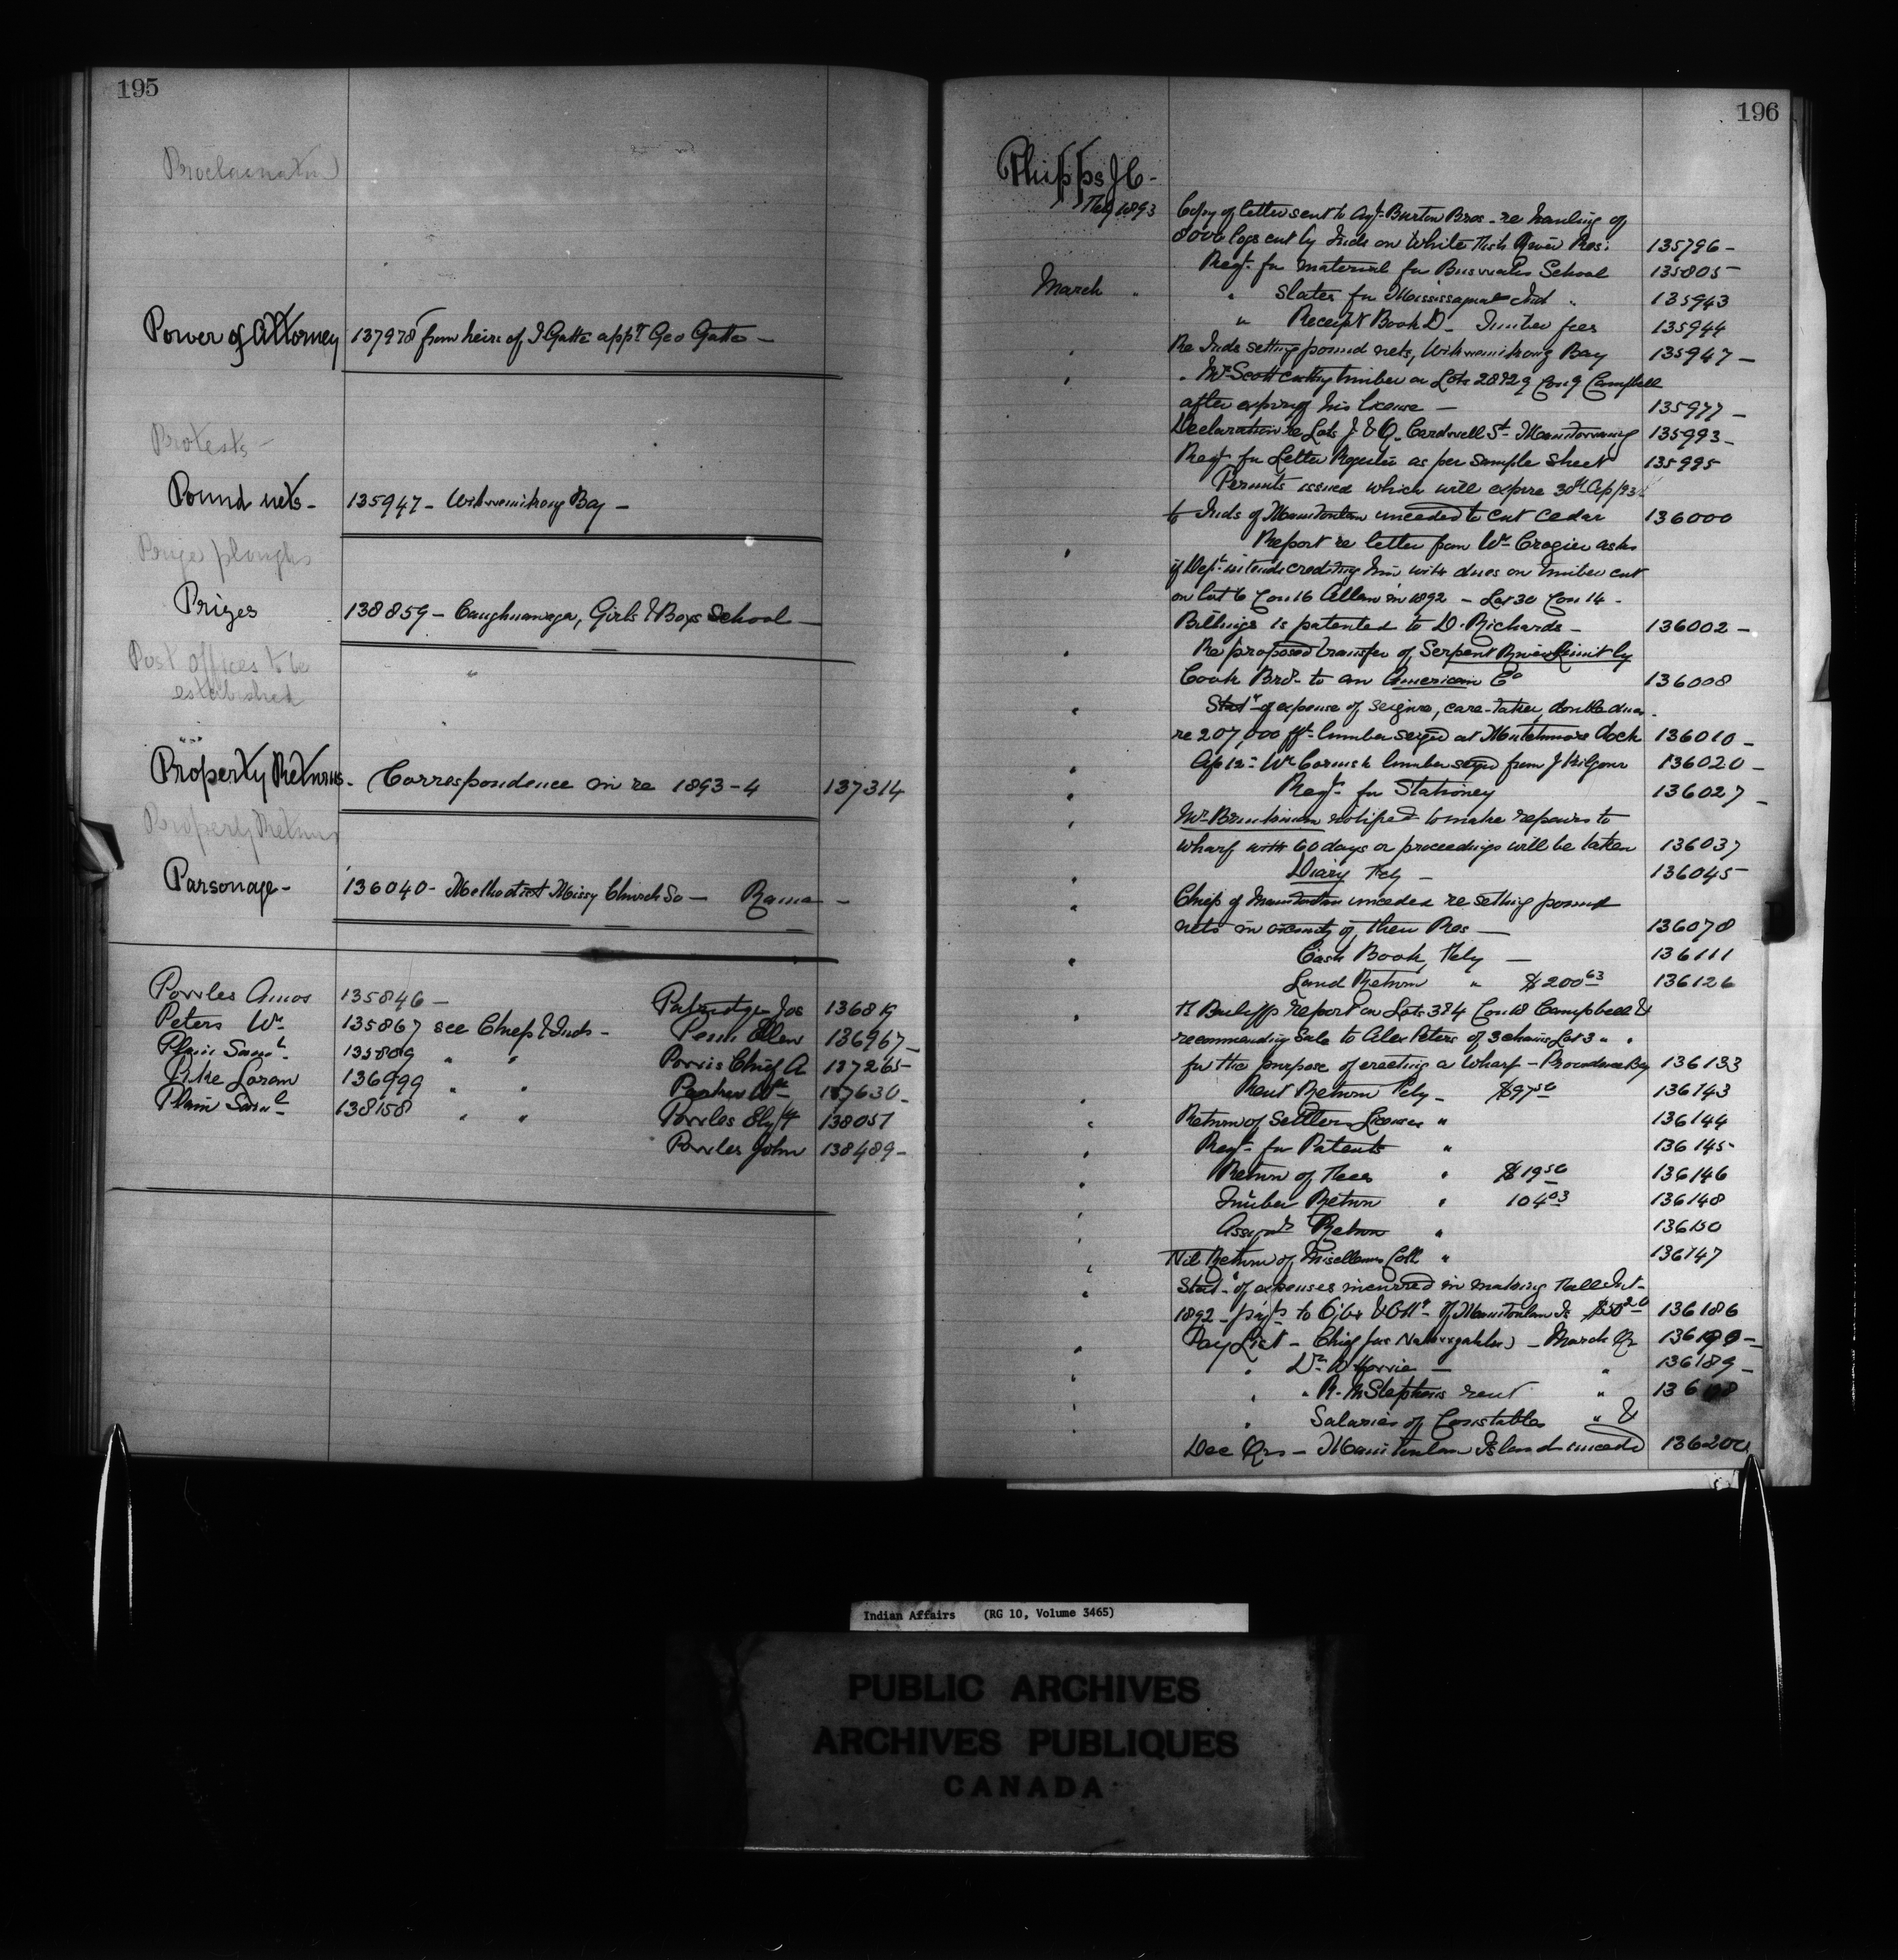 195
Proclamation
Power of Attorney 137978 from heirs of J Gatte appt Geo Gatte —
Protests —
Pound nets - 135947 - Wikwemikong Bay —
Prize ploughs
Prizes 138859 - Caughnawaga, Girls & Boys School —
Post offices to be
established
Property Returns - Correspondence in re 1893-4 137314
Property Returns
Parsonage - 136040 - Methodist Missy Church So — Rama —
Powles Amos 135846 —
Peters Wm 135867 see Chiefs & Inds -
Plain Saml 135809 " "
Pike Loran 136999 " "
Plain Saml 138158 " "
Patridge Jos 136819
Penn Ellen 136967 —
Porris Chief A 137265
Parker Wm 137630 -
Powles Elizth 138051
Powles John 138489 -
196
Phipps J C -
Feby 1893 Copy of letter sent to Agt Burton Bros - re hauling of
8000 logs cut by Inds on White Fish River Res: 135796 -
Reqt for material for School 135805 -
March " " Slates for Mississagua Ind " 135943
" Receipt Book D - Timber fees 135944
" Re Inds setting pound nets, Wikwemikong Bay 135947 -
" " Mr Scott cutting timber on Lots 28 & 29 Con 9 Campbell
after expiry of his license — 135977 -
Declaration re Lots J & Q. Cardwell St - Manitowaning 135993 -
Reqt for Letter Register as per sample sheet 135995
Permits issued which will expire 30th Ap/93
to Inds of Manitoulin unceded to cut cedar 136000
" Report re letter from Wm Crozier asks
if Dept intends crediting him with dues on timber cut
on lot 6 Con 16 Allan in 1892 - Lot 30 Con 14 -
Billings is patented to D. Richards - 136002 -
" Re proposed transfer of Serpent River Limit by
Cook Bros to an American Co 136008
" Statt of expense of seizure, care-taker, double dues -
re 207,000 ft lumber seized at dock 136010 -
" lumber seized from J Kilgour 136020 -
" Reqt for Stationery 136027 -
" Mr notified to make repairs to
wharf with 60 days or proceedings will be taken 136037
" Diary Feby — 136045
" Chiefs of Manitoulin unceded re setting pound
nets in vicinity of their Res — 136078
" Cash Book, Feby — 136111
Land Return " $200 63 136126
" Bailiffs report on Lots 3 & 4 Con 18 Campbell &
recommending Sale to Alex Peters of 3 chains Lot 3 " "
for the purpose of erecting a Wharf - Providence Bay 136133
" Rent Return Feby - $97 50 136143
" Return of Settlers Licenses " 136144
" Reqt for Patents " 136145
" Return of Fees " $19 50 136146
" Timber Return " 104 03 136148
" Assignt Return " 136150
" Nil Return of Miscellanes Coll " 136147
" Statt of expenses incurred in making Fall Int -
1892 - payts to Ojibs & Ottas of Manitoulin Is $50 20 136186
" Pay List - Chief - March Qr
" " Dr W - " 136189 -
" " R. McStephens rent "
" " Salaries of Constables " &
Dec Qrs - Manitoulin Island unceded
Indian Affairs (RG 10, Volume 3465)
PUBLIC ARCHIVES
ARCHIVES PUBLIQUES
CANADA